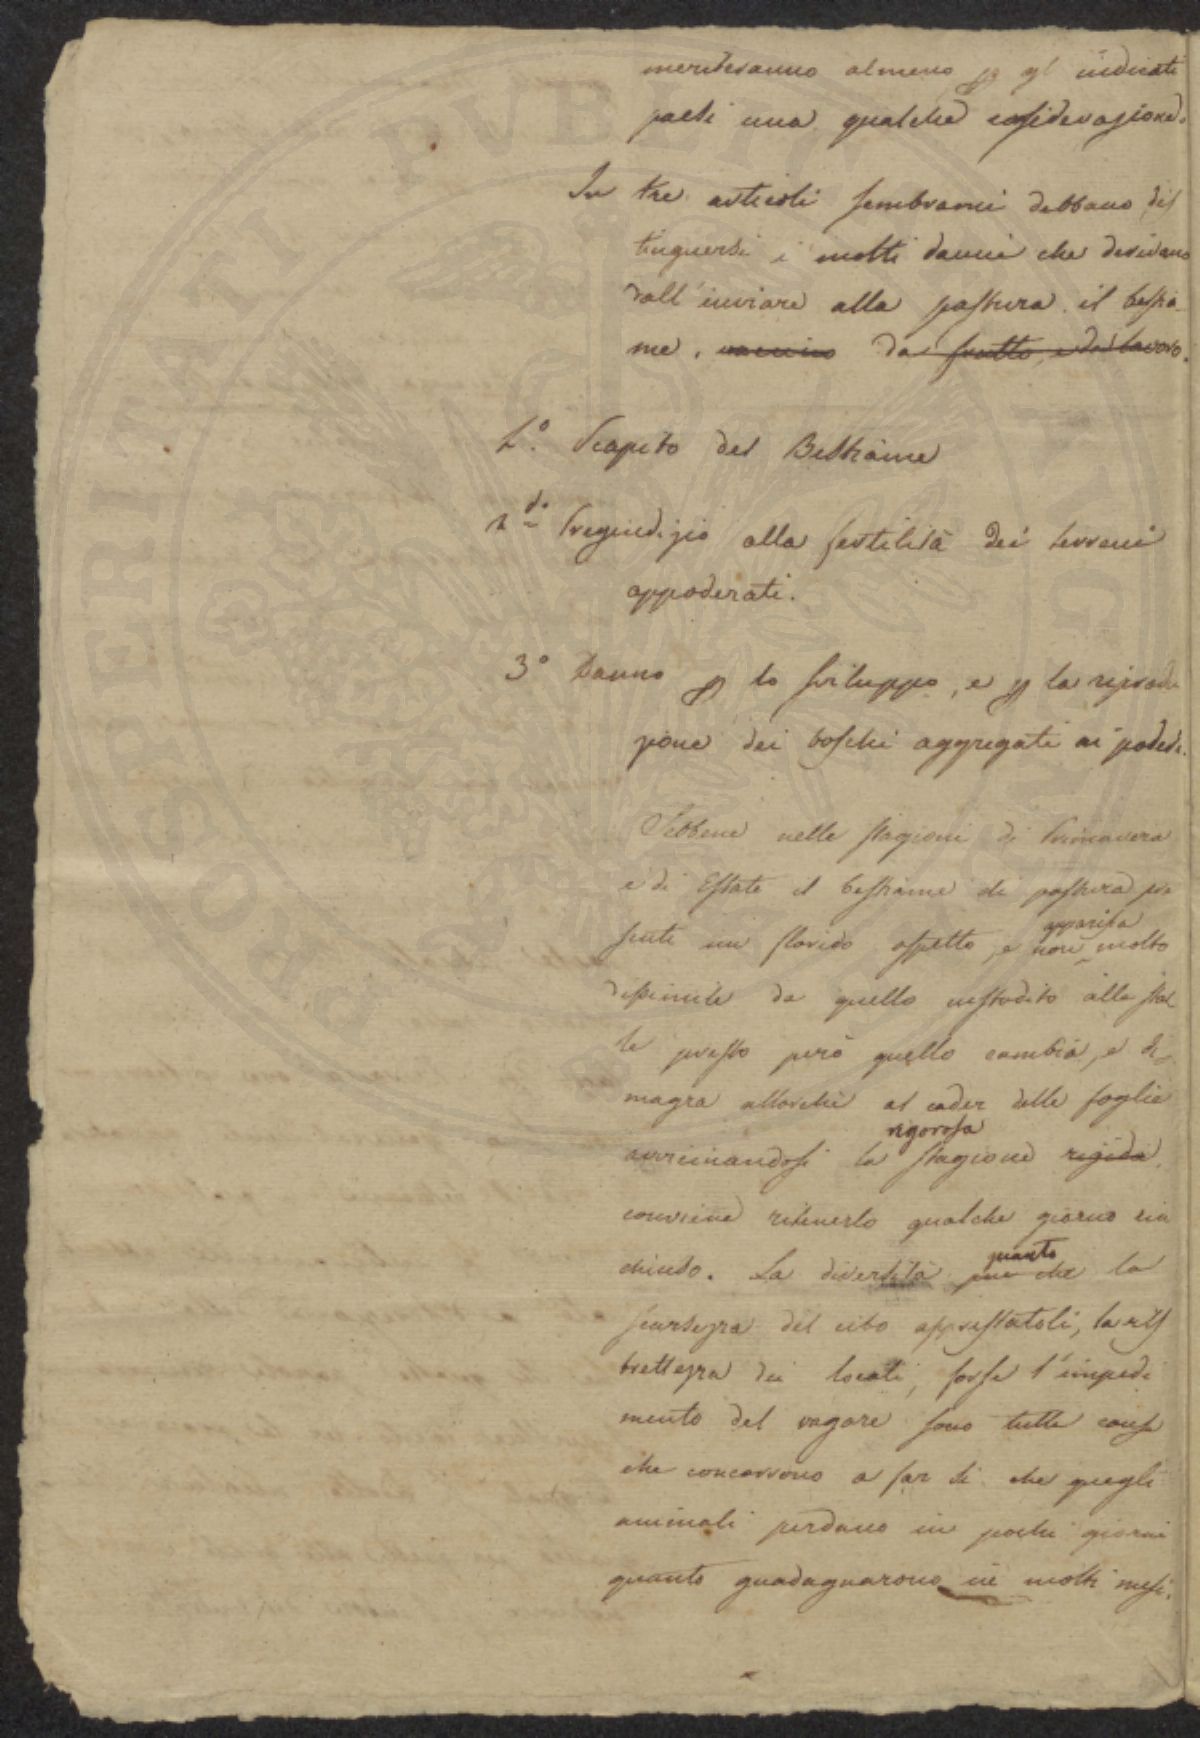 meriteranno almeno p gl' indicati
paesi una qualche considerazione.
In tre articoli sembrami debbano dis
tinguersi i molti danni che derivano
dall'inviare alla pastura il bestia
me, vaccino da frutto, e da lavoro.
1.° Scapito del Bestiame
2do Pregiudizio alla fertilità dei terreni
appoderati.
3° Danno p lo sviluppo, e p la riprodu
zione dei boschi aggregati ai poderi.
Sebbene nelle stagioni di Primavera
e di Estate il bestiame di pastura pre
senti un florido aspetto, e non apparisca molto
dissimile da quello custodito alla stal
la presto però quello cambia, e di
magra allorchè al cader delle foglie
avvicinandosi la rigorosa stagione rigida
conviene ritenerlo qualche giorno rin
chiuso. La diversità quanto che la
scarsezza del cibo apprestatoli, la ris
trettezza dei locali, forse l'impedi
mento del vagare sono tutte cause
che concorrono a far sì che quegli
animali perdano in pochi giorni
quanto guadagnarono in molti mesi.
PROSPERITATI PVBLICAE